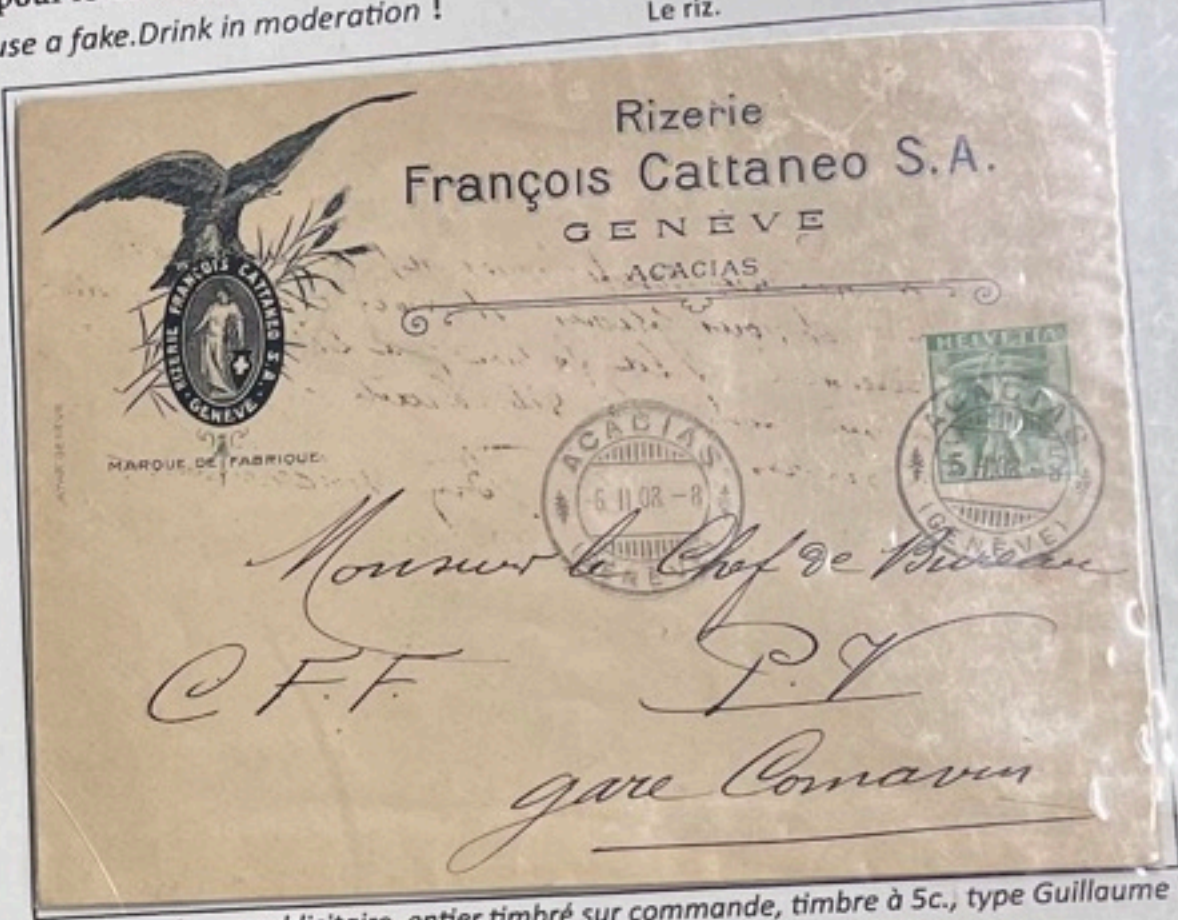 use a fake.Drink in moderation !
Le riz.
Rizerie
François Cattaneo S.A.
GENÈVE
ACACIAS
RIZERIE FRANÇOIS CATTANEO S.A.
GENÈVE
MARQUE DE FABRIQUE
HELVETIA
5 5
ACACIAS
-6.II.08.-8
(GENÈVE)
ACACIAS
(GENÈVE)
Monsieur le Chef de Bureau
C F. F. P. V
gare Cornavin
entier timbré sur commande, timbre à 5c., type Guillaume